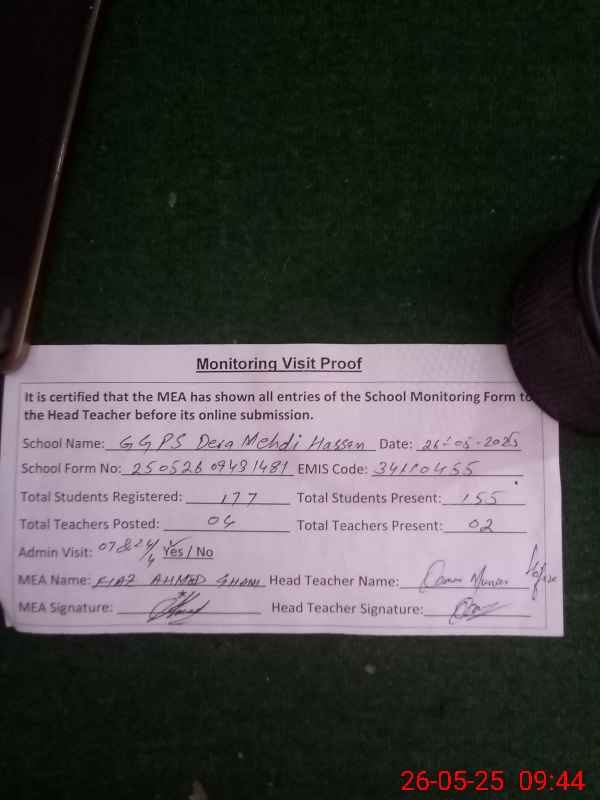 Monitoring Visit Proof
It is certified that the MEA has shown all entries of the School Monitoring Form to
the Head Teacher before its online submission.
School Name: GGPS Dera Mehdi Hassan Date: 26-05-2025
School Form No: 25052609431481 EMIS Code: 34110455
Total Students Registered: 177 Total Students Present: 155
Total Teachers Posted: 04 Total Teachers Present: 02
Admin Visit: Yes / No
MEA Name: FIAZ AHMED GHANI Head Teacher Name:
MEA Signature: Head Teacher Signature:
26-05-25 09:44